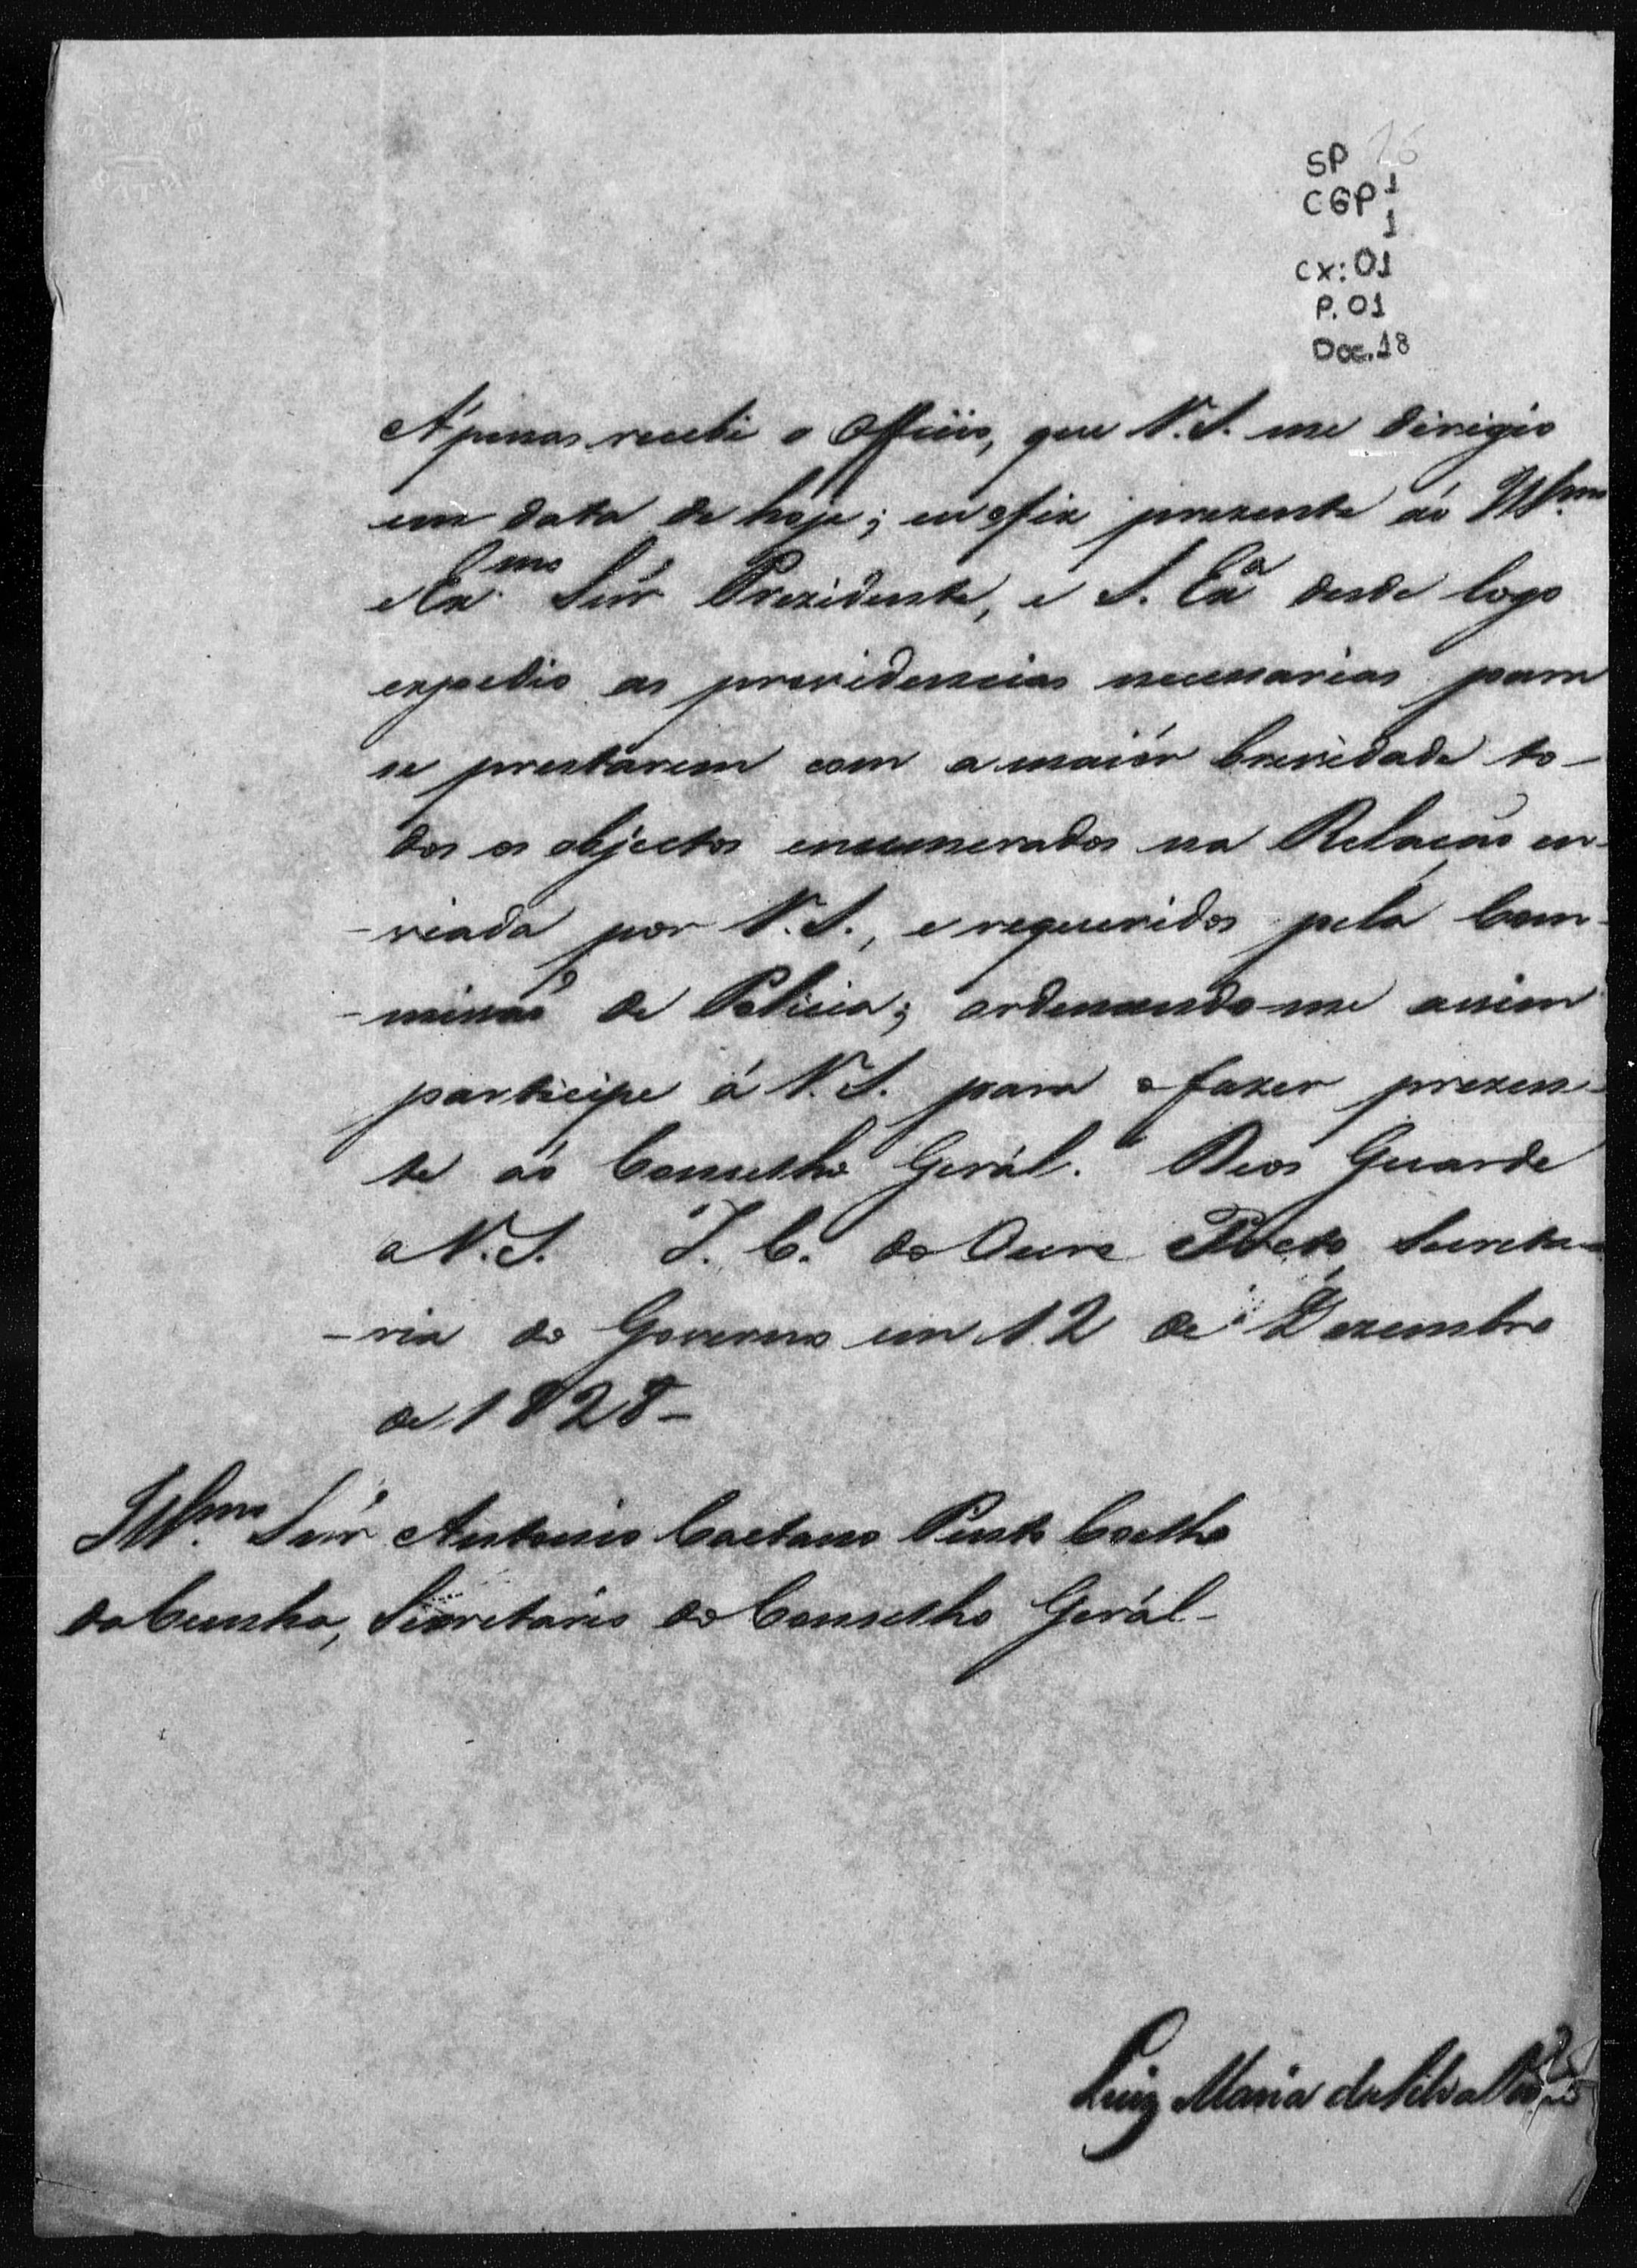 SP 16
CGP 1
1
cx: 01
P. 01
Doc. 18
Apenas recebi o Officio, que V. S. me dirigio
em data de hoje; eu o fiz prezente áo Illmo
e Exmo Snr Prezidente, e S. Exa desde logo
expedio as providencias necessarias para
se prestárem com a maiór brevidade to-
dos os objectos enumerados na Relação en-
-viada por V. S., e requeridos pela Com-
-missão de Policia; ordenando-me assim
participe á V. S. para o fazer prezen-
te áo Conselho Gerál. Deos Guarde
a V. S. I. C. do Ouro Preto, Secreta-
-ria do Governo em 12 de Dezembro
de 1828-
Illmo Snr Antonio Caetano Pinto Coelho
da Cunha, Secretario do Conselho Gerál-
Luiz Maria da Silva Pinto